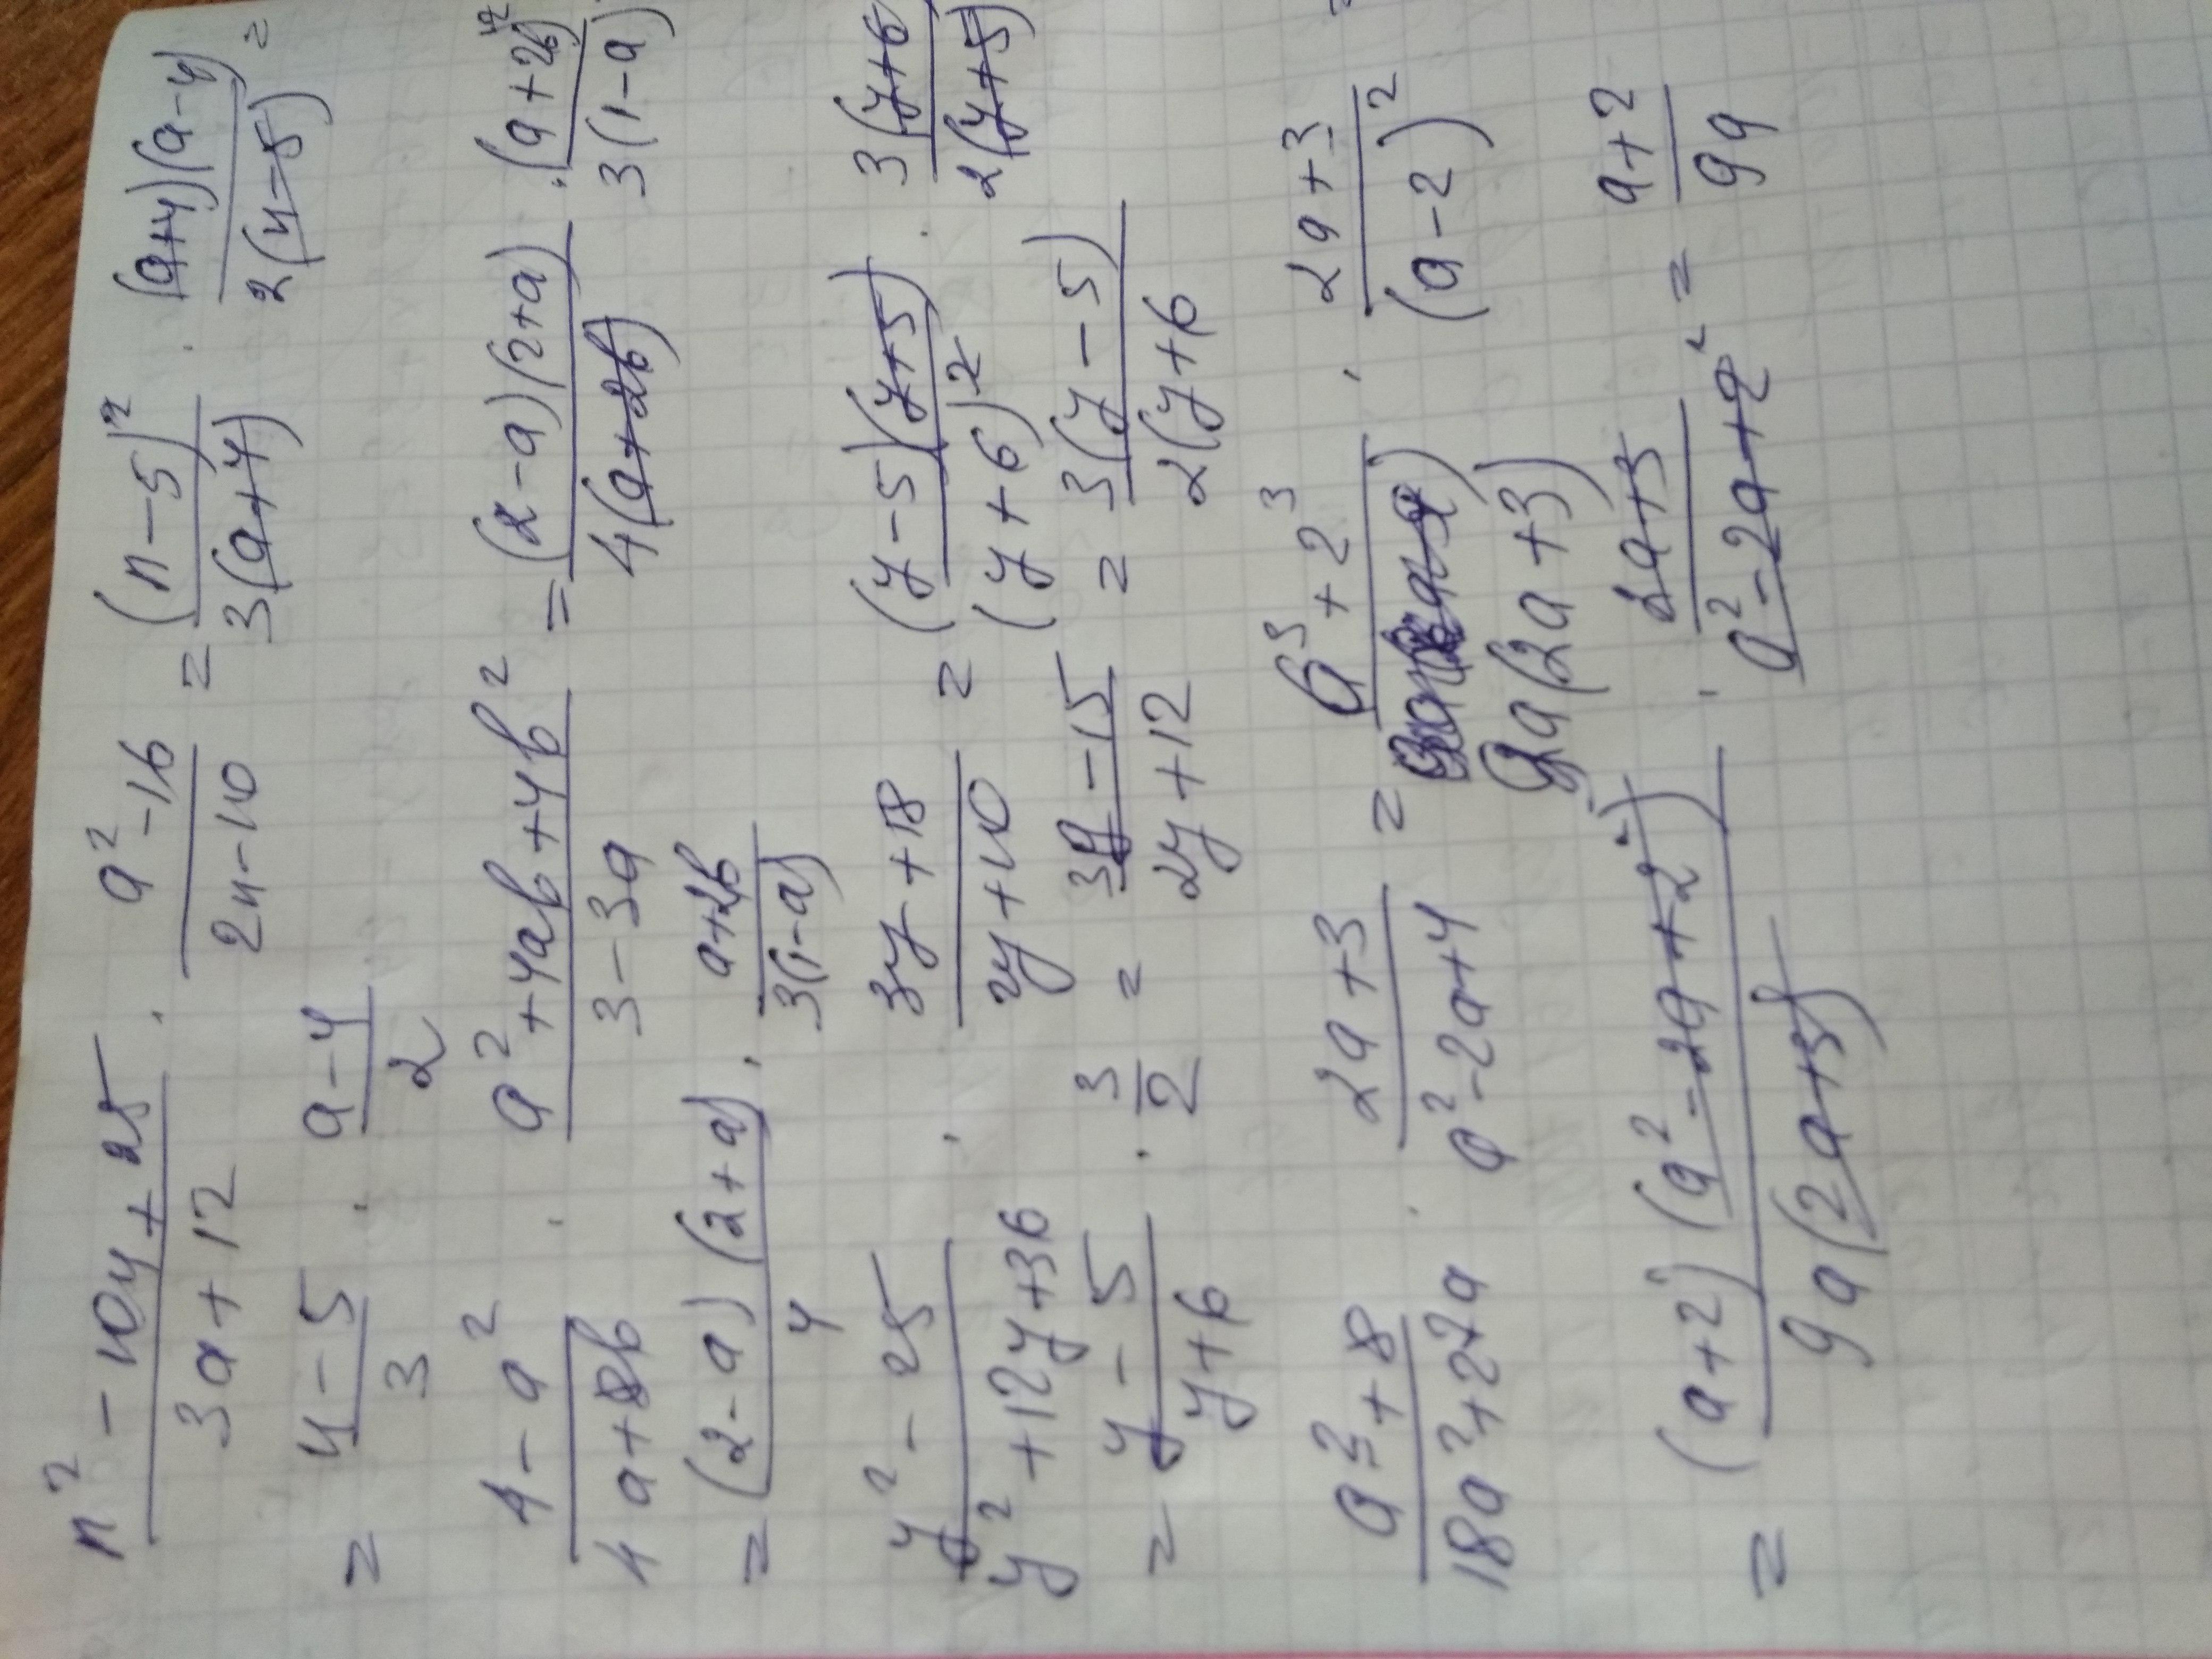 (n² - 10n + 25)/(3a + 12) · (a² - 16)/(2n - 10) = (n - 5)²/(3(a + 4)) · ((a + 4)(a - 4))/(2(n - 5)) =
= (n - 5)/3 · (a - 4)/2
(4 - a²)/(4a + 8b) · (a² + 4ab + 4b²)/(3 - 3a) = ((2 - a)(2 + a))/(4(a + 2b)) · (a + 2b)²/(3(1 - a)
= ((2 - a)(2 + a))/4 · (a + 2b)/(3(1 - a))
(y² - 25)/(y² + 12y + 36) · (3y + 18)/(2y + 10) = ((y - 5)(y + 5))/(y + 6)² · 3(y + 6/2(y + 5)
= (y - 5)/(y + 6) · 3/2 = (3y - 15)/(2y + 12) = 3(y - 5)/2(y + 6
(a³ + 8)/(18a² + 27a) · (2a + 3)/(a² - 2a + 4) = (a³ + 2³)/(9a(2a + 3)) · (2a + 3)/(a - 2)²
= ((a + 2)(a² - 2a + 2²))/(9a(2a + 3)) · (2a + 3)/(a² - 2a + 2²) = (a + 2)/(9a)